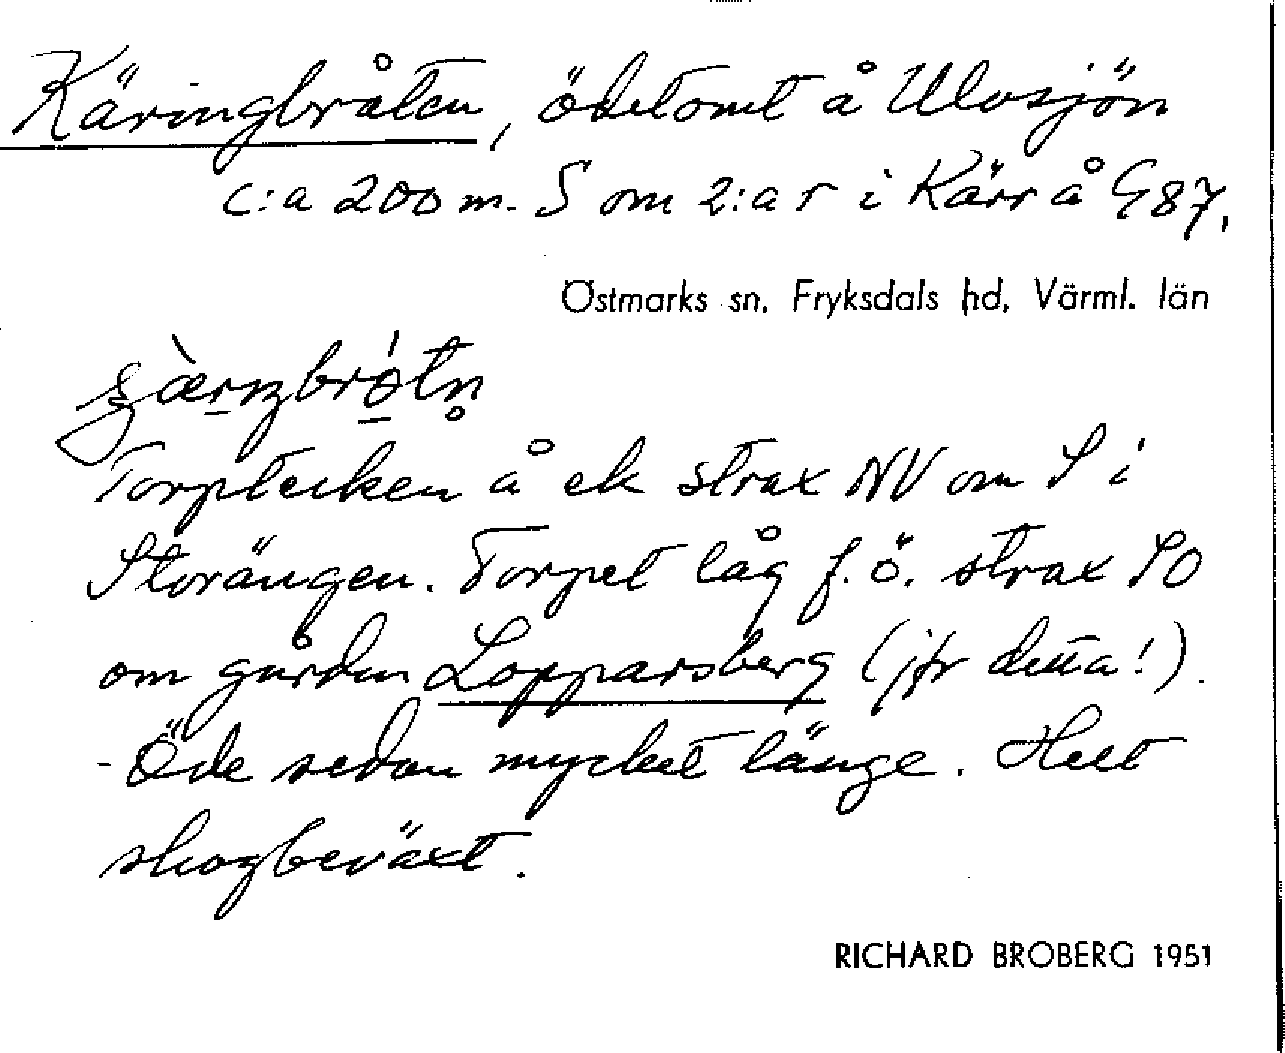 Käringbråten, ödetomt å Ulvsjön
c:a 200 m. S om 2:a r i Kärr å G 87.
Östmarks sn. Fryksdals hd, Värml. län
Torptecken å ek strax NV om S i
Storängen. Torpet låg f. ö. strax SO
om gården Lopparsberg (jfr detta!).
- Öde sedan mycket länge. Helt
skogbeväxt.
RICHARD BROBERG 1951